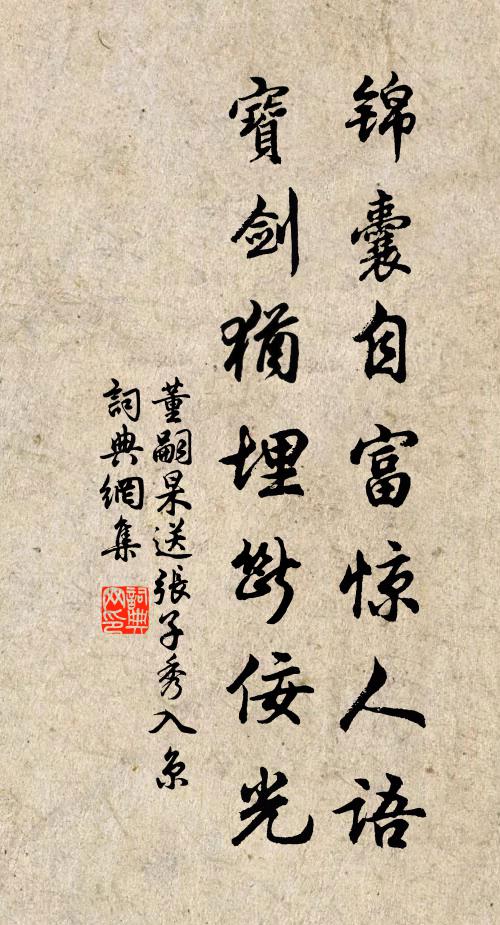 锦囊自富惊人语
寶剑猶埋斷佞光
董嗣杲送張子秀入京
詞典網集
詞典网印